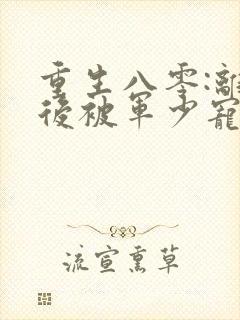 重生八零:離
後被軍少寵
流宣熏草